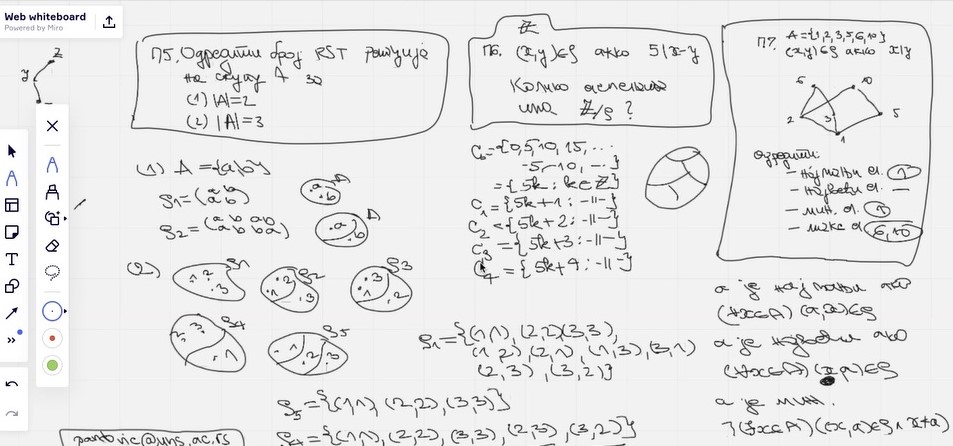 Web whiteboard
Powered by Miro
z
y
П5. Одредити број RST релација
на скупу A за
(1) |A|=2
(2) |A|=3
(1) A={a,b}
ρ1=(a b
a b)
ρ2=(a b a b
a b b a)
a
b
A
.a
b
A
(2)
ρ1
1 2
.3
ρ2
.2
1
.3
ρ3
.3
.1
.2
ρ4
2. 3.
.1
ρ5
.1
.2
.3
ρ1={(1,1), (2,2)(3,3),
(1,2), (2,1), (1,3), (3,1)
(2,3), (3,2)}
ρ5={(1,1), (2,2), (3,3)}
ρ4={(1,1), (2,2), (3,3), (2,3), (3,2)}
pantovic@uns.ac.rs
ℤ
П6. (x,y)∈ρ акко 5|x-y
Колико
има ℤ/ρ ?
C0={0,5,10,15,...
-5,-10, ...}
={5k : k∈ℤ}
C1={5k+1 : -11-}
C2={5k+2 : -11-}
C3={5k+3 : -11-}
C4={5k+4 : -11-}
П7. A={1,2,3,5,6,10}
(x,y)∈ρ акко x|y
6
10
2
3
5
1
Одредити:
- најмањи ел. 1
- највећи ел. —
- мин. ел. 1
- макс ел. 6,10
a је најмањи ако
(∀x∈A)(a,x)∈ρ
a је највећи ако
(∀x∈A)(x,a)∈ρ
a је мин.
¬(∃x∈A)((x,a)∈ρ ∧ x≠a)